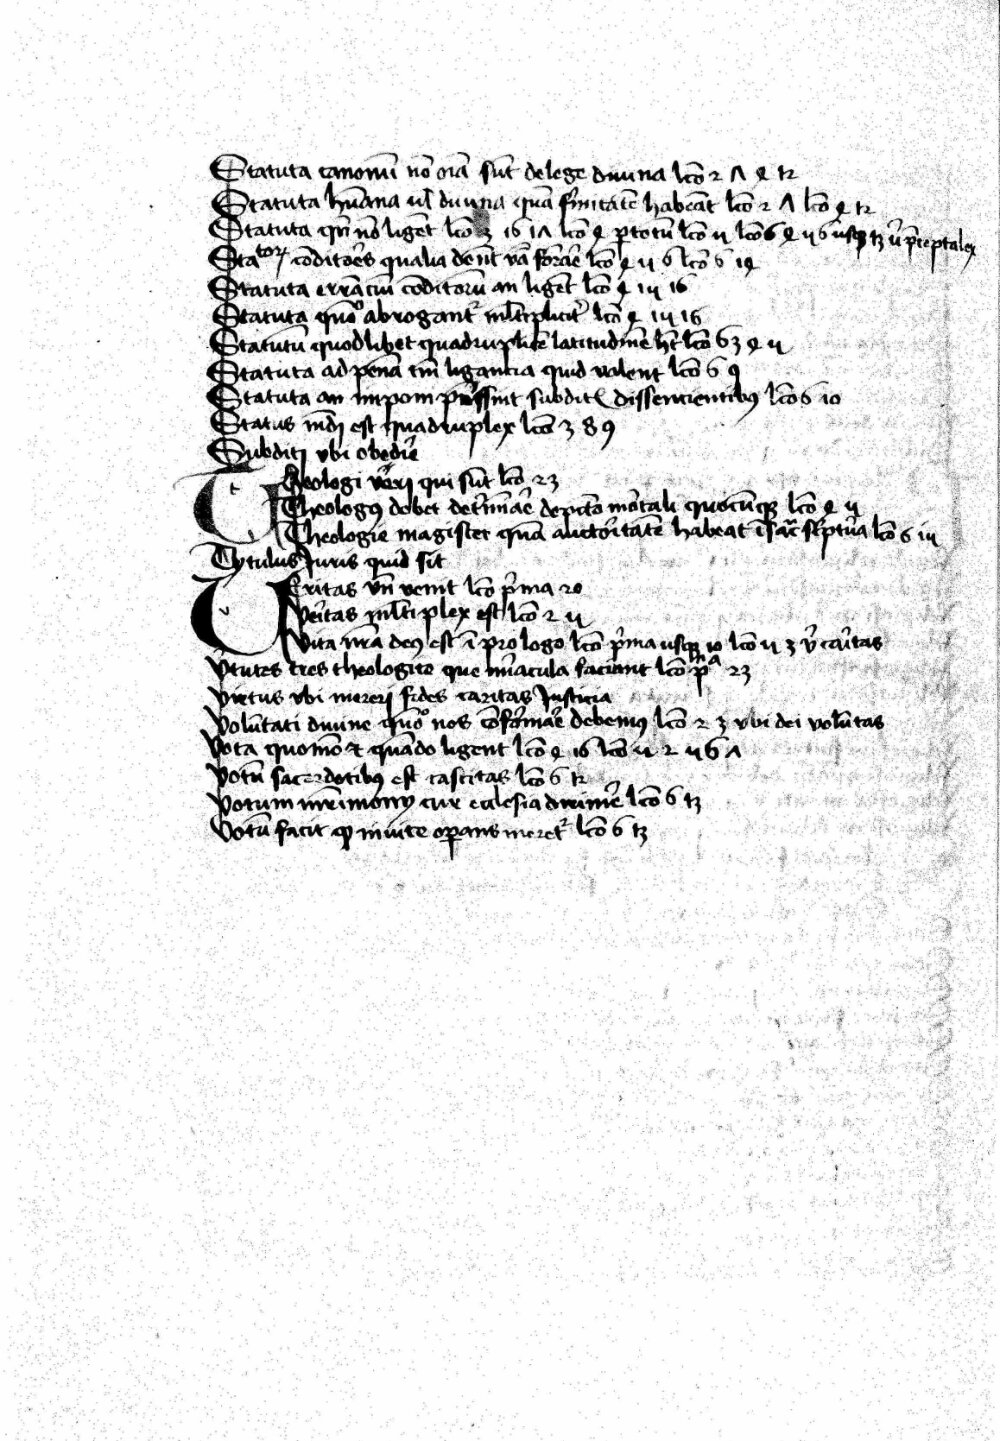 Statuta canonu̅ no̅ oi̅a su̅t de lege diuina lc̅o 2 Λ 4 12
Statuta hu̅ana ul̅ diuina qua̅ firmitate̅ habea̅t lc̅o 2 Λ lc̅o 4 12
Statuta qn̅ no̅ lige̅t lc̅o 3 16 1Λ lc̅o 4 p totu̅ lc̅o 11 lc̅o 6 4 11 6 usqꝫ 13 preceptalex
Statorꝝ co̅ditores qualia de̅nt lc̅o 4 11 6 lc̅o 6 14
Statuta erra̅ciu̅ co̅ditoru̅ an lige̅t lc̅o 4 111 16
Statuta quo̅ abrogant̉ ml̅tiplicit̉ lc̅o 4 111 16
Statutu̅ quodlibet quadruplice̅ latitudine̅ hꝫ lc̅o 6 3 4 11
Statuta ad pena̅ tm̅ ligancia quid valent lc̅o 6 9
Statuta an i̅poni possint subditꝭ dissencientibꝰ lc̅o 6 10
Status mu̅di est quadruplex lc̅o 3 8 9
Subditi vbi obedire̅
Theologi veri qui su̅t lc̅o 23
Theologꝰ debet det̉mi̅are de pcc̅o mortali quocu̅qꝫ lc̅o 4 11
Theologie magister qua̅ auctoritate̅ habeat i̅ sac̉ scriptura lc̅o 6 111
Tytulus Iuris quid sit
Veritas vn̅ venit lc̅o prima 20
Veritas ml̅tiplex est lc̅o 2 11
Vita nr̅a deꝰ est i̅ prologo lc̅o prima usqꝫ 10 lc̅o 11 3 v̉ caritas
Virtutes tres theologice que miracula faciu̅t lc̅o pͣ 23
Virtus vbi mereri fides caritas Iusticia
Volu̅tati diuine quo̅ nos co̅formare debemꝰ lc̅o 2 3 vbi dei volu̅tas
Vota quomo̅ et qua̅do ligent lc̅o 4 16 lc̅o 11 2 11 6 Λ
Votu̅ sacerdotibꝰ est castitas lc̅o 6 12
Votum mr̅imony cur ecclesia dirime̅ lc̅o 6 13
Votu̅ facit ꝙ inuite operans meret̉ lc̅o 6 13